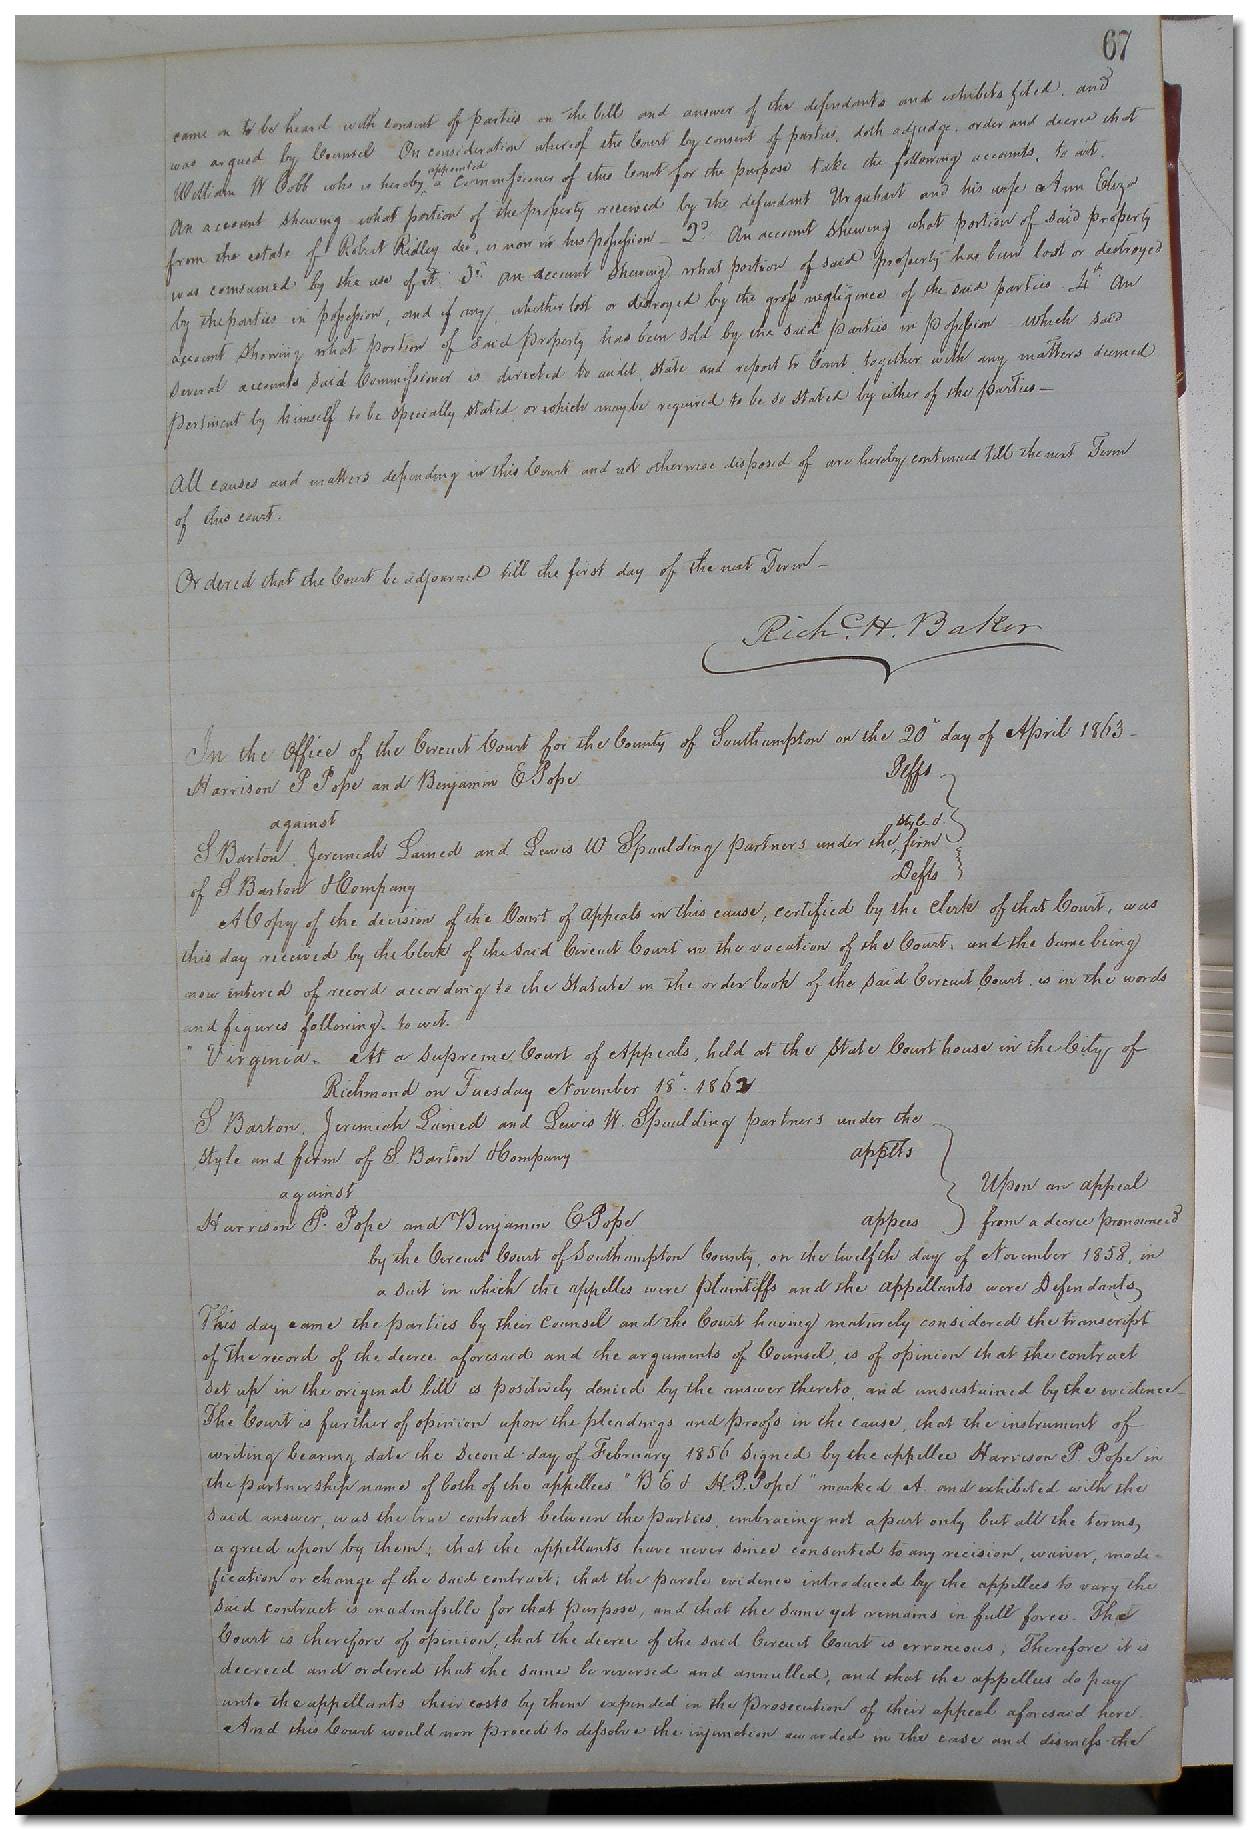 67
came on to be heard with consent of parties on the bill and answer of the defendants and exhibits filed, and
was argued by Counsel On consideration whereof the Court by consent of parties, doth adjudge, order and decree that
William W Cobb who is hereby appointed a Commissioner of this Court for the purpose take the following accounts, to wit.
An account shewing what portion of the property received by the defendant Urquhart and his wife Ann Eliza
from the estate of Robert Ridley decd, is now in his possession - 2d An account shewing what portion of said property
was consumed by the use of it 3d an account shewing what portion of said property has been lost or destroyed
by the parties in possession, and if any, whether lost or destroyed by the gross negligence of the said parties 4th An
account showing what portion of said property has been sold by the said parties in possession - which said
several accounts said Commissioner is directed to audit, state and report to Court, together with any matters deemed
pertinent by himself to be specially stated, or which may be required to be so stated by either of the parties—
All causes and matters depending in this Court and not otherwise disposed of are hereby continued till the next Term
of this court.
Ordered that the Court be adjourned till the first day of the next Term—
Richd. H. Baker
In the Office of the Circuit Court for the County of Southampton on the 20th day of April 1863-
Harrison P Pope and Benjamin E Pope Plffs
against
S Barton, Jeremiah Lained and Lewis W Spaulding partners under the styled firm
of S Barton & Company Defts
A Copy of the decision of the Court of Appeals in this cause, certified by the Clerk of that Court, was
this day received by the Clerk of the said Circuit Court in the vacation of the Court, and the same being
now entered of record according to the Statute in the order book of the said Circuit Court, is in the words
and figures following, to wit.
" Virginia. At a Supreme Court of Appeals, held at the State Court house in the City of
Richmond on Tuesday November 18th 1862
S. Barton, Jeremiah Lained and Lewis W. Spaulding partners under the
style and firm of S. Barton & Company appelts
against
Harrison P. Pope and Benjamin E Pope appees
Upon an appeal
from a decree pronounced
by the Circuit Court of Southampton County, on the twelfth day of November 1858, in
a suit in which the appelles were plaintiffs and the appellants were Defendants,
This day came the parties by their counsel and the Court having maturely considered the transcript
of the record of the decree aforesaid and the arguments of Counsel, is of opinion that the contract
set up in the original bill is positively denied by the answer thereto, and unsustained by the evidence-
The Court is further of opinion upon the pleadings and proofs in the cause, that the instrument of
writing bearing date the second day of February 1856 signed by the appellee Harrison P. Pope in
the partnership name of both of the appellees "B E & H. P. Pope" marked A. and exhibited with the
said answer, was the true contract between the parties, embracing not a part only but all the terms,
agreed upon by them; that the appellants have never since consented to any recision, waiver, modi-
fication or change of the said contract; that the parole evidence introduced by the appellees to vary the
said contract is inadmissible for that purpose, and that the same yet remains in full force. The
Court is therefore of opinion, that the decree of the said Circuit Court is erroneous; Therefore it is
decreed and ordered that the same be reversed and annulled, and that the appellees do pay
unto the appellants their costs by them expended in the prosecution of their appeal aforesaid here.
And this Court would now proceed to dissolve the injunction awarded in the case and dismiss the